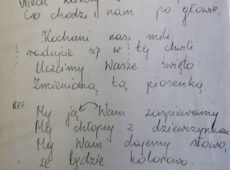 Wiem każdy
Co chodzi nam po głowie.
Kochani nasi mili
radujcie się w tę chwilę
Uczcimy Wasze święto
Zmienioną tą piosenką.
REF My ją Wam zaśpiewamy
My chłopcy z dziewczynkami
My Wam dajemy słowo,
że będzie kolorowo.